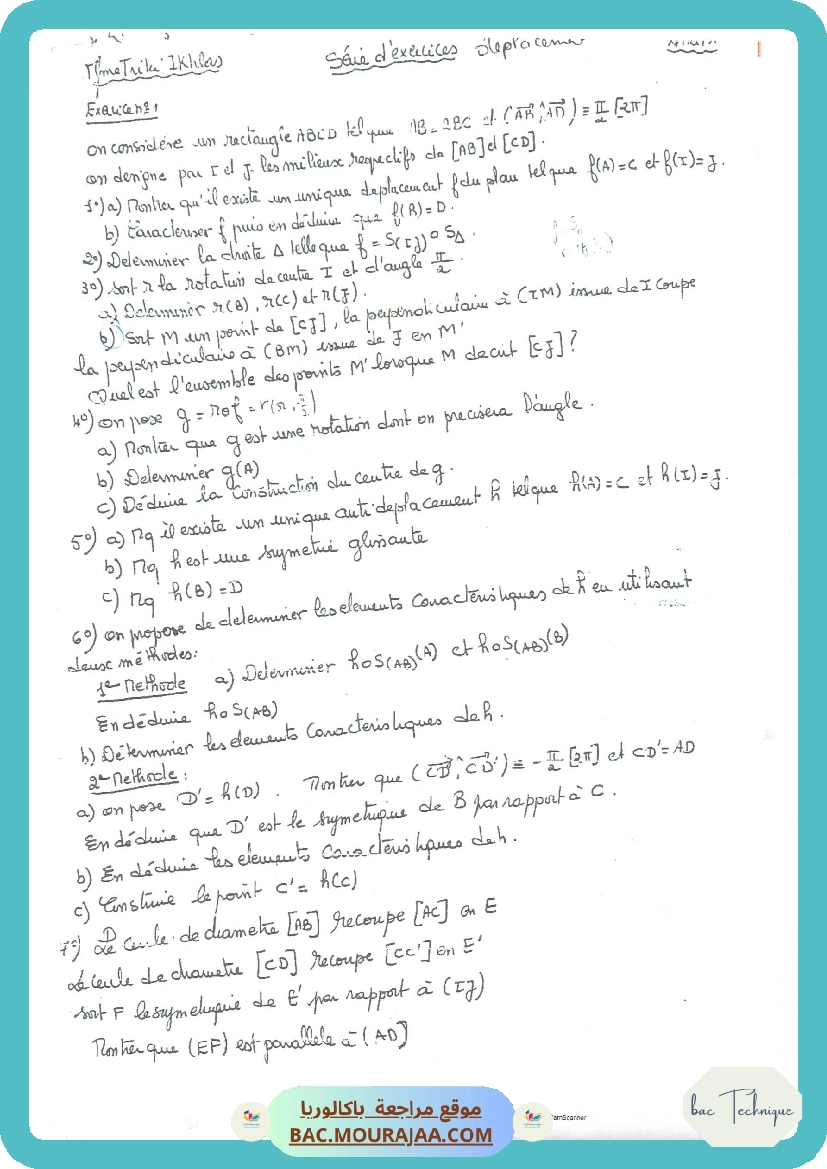 Mme Triki Ikhlas
Série d'exercices déplacement
Exercice n°1
on considère un rectangle ABCD tel que AB = 2BC et (AB, AD) ≡ π/2 [2π]
on designe par I et J les milieux respectifs de [AB] et [CD].
1°) a) Montrer qu'il existe un unique deplacement f du plan tel que f(A)=C et f(I)=J.
b) Caracteriser f puis en déduire que f(B) = D.
2°) Determiner la droite Δ telle que f = S(IJ) o SΔ.
3°) soit r la rotation de centre I et d'angle π/2.
a) Determiner r(B), r(C) et r(J).
b) Soit M un point de [CJ], la perpendiculaire à (IM) issue de I coupe
la perpendiculaire à (BM) issue de J en M'
Quel est l'ensemble des points M' lorsque M decrit [CJ] ?
4°) on pose g = rof = r(Ω, π/2)
a) Montrer que g est une rotation dont on precisera l'angle.
b) Determiner g(A)
c) Déduire la construction du centre de g.
5°) a) Mq il existe un unique anti deplacement h tel que h(A) = C et h(I) = J.
b) Mq h est une symetrie glissante
c) Mq h(B) = D
6°) on propose de determiner les elements Caractéristiques de h en utilisant
deux méthodes:
1e Methode a) Determiner hoS(AB)(A) et hoS(AB)(B)
En déduire hoS(AB)
b) Déterminer les elements Caracteristiques de h.
2e Methode :
a) on pose D' = h(D). Montrer que (CB, CD') ≡ -π/2 [2π] et CD' = AD
En déduire que D' est le symetrique de B par rapport à C.
b) En déduire les elements Caractéristiques de h.
c) Construire le point C' = h(C)
7°) Le cercle de diametre [AB] recoupe [AC] en E
Le cercle de diametre [CD] recoupe [CC'] en E'
soit F le symetrique de E' par rapport à (IJ)
Montrer que (EF) est parallele à (AD)
موقع مراجعة باكالوريا
BAC.MOURAJAA.COM
CamScanner
bac Technique